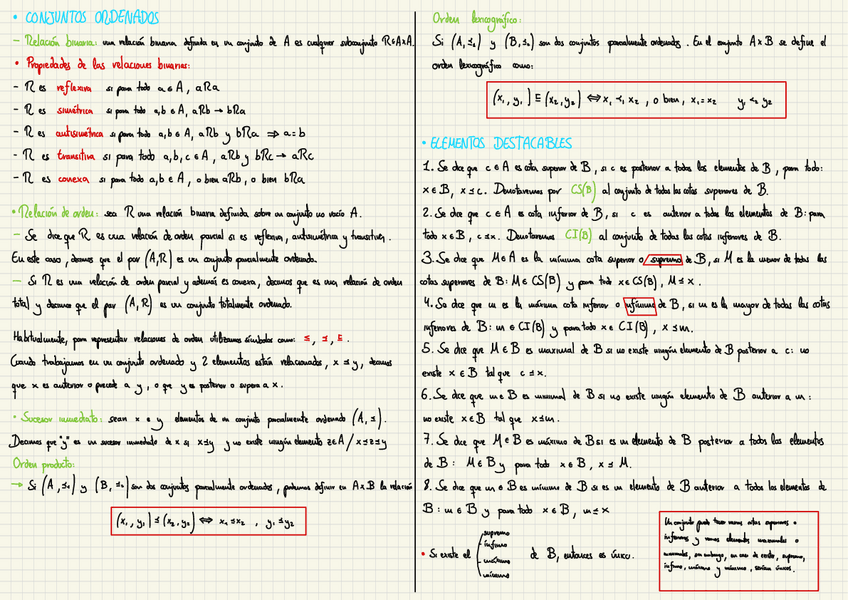 • CONJUNTOS ORDENADOS
– Relación binaria: una relación binaria definida en un conjunto de A es cualquier subconjunto R⊆AxA.
• Propiedades de las relaciones binarias:
– R es reflexiva si para todo a ∈ A, aRa
– R es simétrica si para todo a,b ∈ A, aRb → bRa
– R es antisimétrica si para todo a,b ∈ A, aRb y bRa ⇒ a=b
– R es transitiva si para todo a,b,c ∈ A, aRb y bRc → aRc
– R es conexa si para todo a,b ∈ A, o bien aRb, o bien bRa
• Relación de orden: sea R una relación binaria definida sobre un conjunto no vacío A.
– Se dice que R es una relación de orden parcial si es reflexiva, antisimétrica y transitiva.
En este caso, diremos que el par (A,R) es un conjunto parcialmente ordenado.
– Si R es una relación de orden parcial y además es conexa, decimos que es una relación de orden
total y decimos que el par (A,R) es un conjunto totalmente ordenado.
Habitualmente, para representar relaciones de orden utilizamos símbolos como: ≤, ≼, ⊑.
Cuando trabajamos en un conjunto ordenado y 2 elementos están relacionados, x ≤ y, decimos
que x es anterior o precede a y, o que y es posterior o supera a x.
• Sucesor inmediato: sean x e y elementos de un conjunto parcialmente ordenado (A, ≤).
Decimos que "y" es un sucesor inmediato de x si x≤y y no existe ningún elemento z∈A / x≤z≤y
Orden producto:
→ Si (A, ≤₁) y (B, ≤₂) son dos conjuntos parcialmente ordenados, podemos definir en AxB la relación
(x₁, y₁) ≤ (x₂, y₂) ⟺ x₁ ≤ x₂ , y₁ ≤ y₂
Orden lexicográfico:
Si (A, ≤₁) y (B, ≤₂) son dos conjuntos parcialmente ordenados. En el conjunto A x B se define el
orden lexicográfico como:
(x₁, y₁) ⊑ (x₂, y₂) ⟺ x₁ <₁ x₂ , o bien, x₁=x₂ y₁ ≤₂ y₂
• ELEMENTOS DESTACABLES
1. Se dice que c ∈ A es cota superior de B, si c es posterior a todos los elementos de B, para todo:
x ∈ B, x ≤ c. Denotaremos por CS(B) al conjunto de todas las cotas superiores de B.
2. Se dice que c ∈ A es cota inferior de B, si c es anterior a todos los elementos de B: para
todo x ∈ B, c ≤ x. Denotaremos CI(B) al conjunto de todas las cotas inferiores de B.
3. Se dice que M ∈ A es la mínima cota superior o supremo de B, si M es la menor de todas las
cotas superiores de B: M ∈ CS(B) y para todo x ∈ CS(B), M ≤ x.
4. Se dice que m es la máxima cota inferior o ínfimo de B, si m es la mayor de todas las cotas
inferiores de B: m ∈ CI(B) y para todo x ∈ CI(B), x ≤ m.
5. Se dice que M ∈ B es maximal de B si no existe ningún elemento de B posterior a c: no
existe x ∈ B tal que c ≤ x.
6. Se dice que m ∈ B es minimal de B si no existe ningún elemento de B anterior a m:
no existe x ∈ B tal que x ≤ m.
7. Se dice que M ∈ B es máximo de B si es un elemento de B posterior a todos los elementos
de B: M ∈ B y para todo x ∈ B, x ≤ M.
8. Se dice que m ∈ B es mínimo de B si es un elemento de B anterior a todos los elementos de
B: m ∈ B y para todo x ∈ B, m ≤ x
• Si existe el
supremo
ínfimo
máximo
mínimo
de B, entonces es único.
Un conjunto puede tener varias cotas superiores o
inferiores y varios elementos maximales o
minimales, sin embargo, en caso de existir, supremo,
ínfimo, máximo y mínimo, serían únicos.